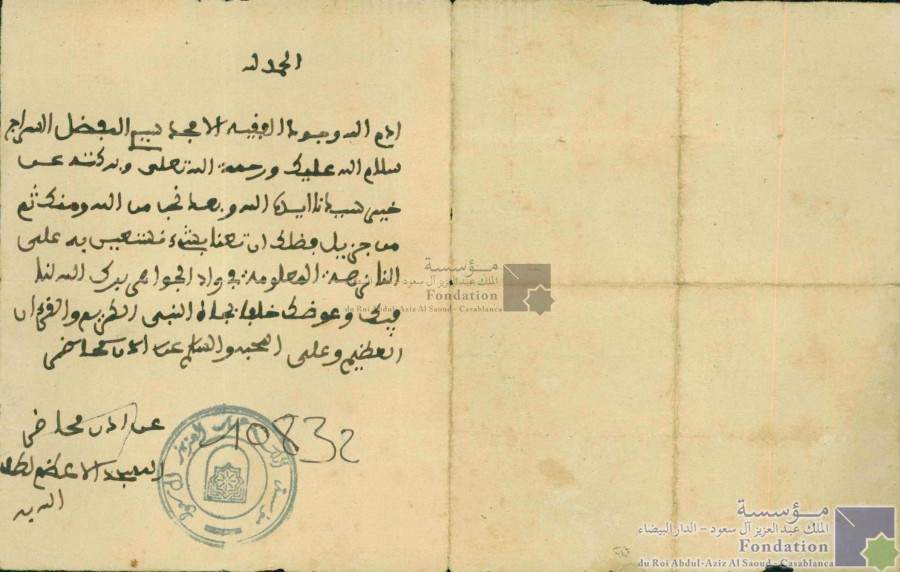 الحمد لله
ادام الله وجود الفقيه الامجد سيدي المفضل السراج
سلام الله عليك ورحمة الله تعلى وبركته عن
خير سيدنا ايده الله وبعد نحبا من الله ومنك ثم
من جزيل فضلك ان تعنا بشيء نستعين به على
النازلة المعلومة في واد الجواهر يبرك الله لنا
فيك وعوضك خلفا بجاه النبي الكريم والقرءان
العظيم وعلى المحبة والسلم عبد الا
عبد
الاعظم لطف
الله به
10832
مؤسسة
الملك عبد العزيز آل سعود - الدار البيضاء
Fondation
du Roi Abdul-Aziz Al Saoud - Casablanca
مؤسسة
الملك عبد العزيز آل سعود - الدار البيضاء
Fondation
du Roi Abdul-Aziz Al Saoud - Casablanca